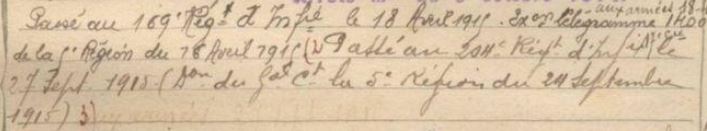 aux armées 18-4
Passé au 169e Régt d'Infie le 18 Avril 1915. Exon télégramme 1400
de la 5e Région du 16 Avril 1915 (2) Passé au 204e Régt d'Infie le
27 Sept. 1915 (Don du Gal Ct la 5e Région du 24 Septembre
1915) 3)